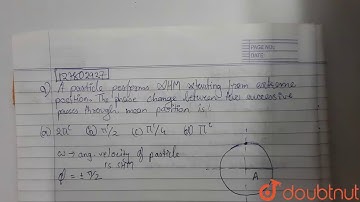 PAGE NO.
DATE
12XO2927
Q) A particle performs SHM starting from extreme
position. The phase change between two successive
pass through mean position is:
(a) 2π^c (b) π/2 (c) π/4 (d) π^c
ω → ang. velocity of particle
is SHM
φ = ± π/2
A
doubtnut